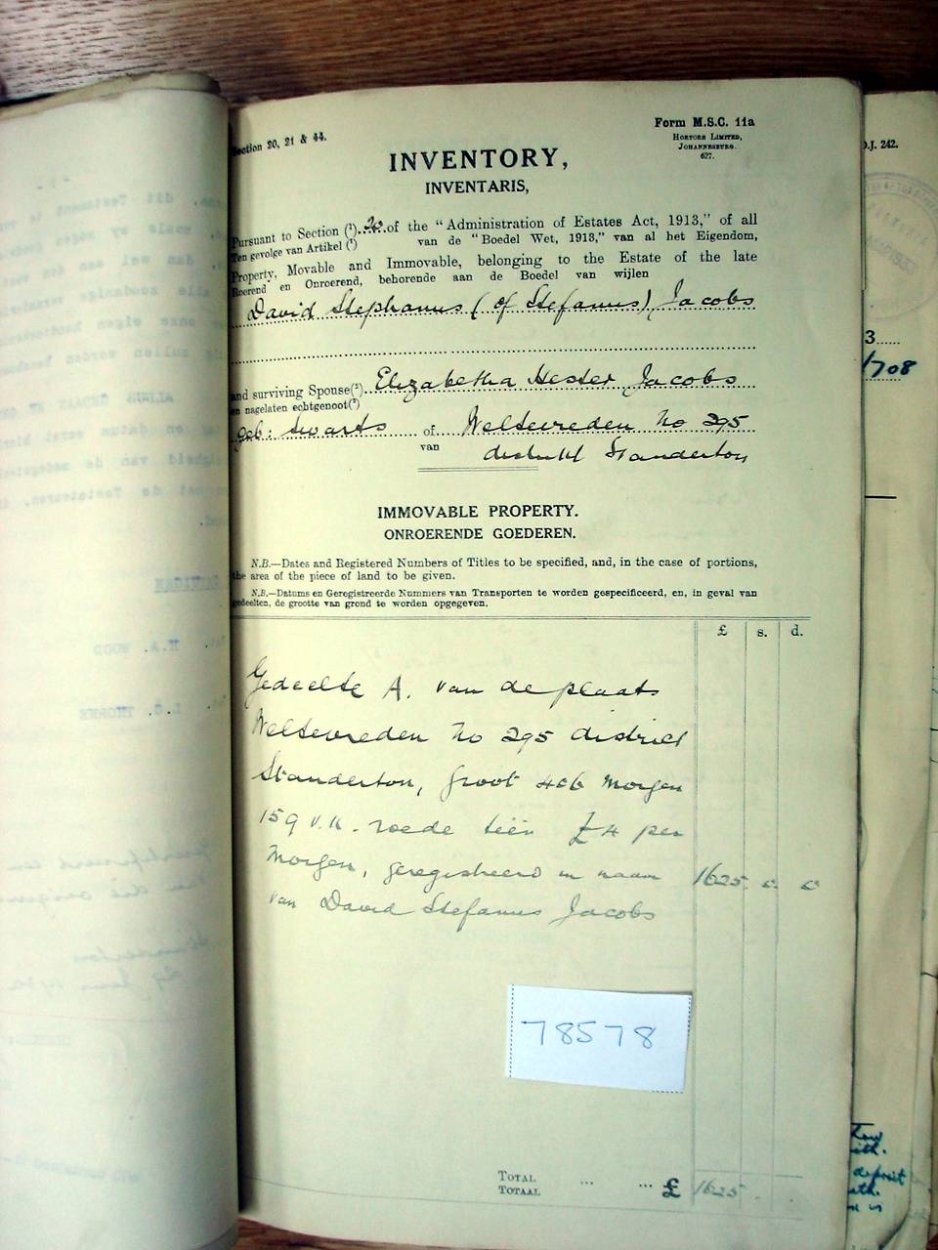 Section 20, 21 & 44.
Form M.S.C. 11a
HORTORS LIMITED,
JOHANNESBURG.
627.
INVENTORY,
INVENTARIS,
Pursuant to Section (¹) 20 of the "Administration of Estates Act, 1913," of all
Ten gevolge van Artikel (¹) van de "Boedel Wet, 1913," van al het Eigendom,
Property, Movable and Immovable, belonging to the Estate of the late
Roerend en Onroerend, behorende aan de Boedel van wijlen
David Stephanus (of Stefanus) Jacobs
and surviving Spouse(²) Elizabetha Hester Jacobs
en nagelaten echtgenoot(²)
geb: Swarts of Weltevreden No 295
van distrikt Standerton
IMMOVABLE PROPERTY.
ONROERENDE GOEDEREN.
N.B.—Dates and Registered Numbers of Titles to be specified, and, in the case of portions,
the area of the piece of land to be given.
N.B.—Datums en Geregistreerde Nummers van Transporten te worden gespecificeerd, en, in geval van
gedeelten, de grootte van grond te worden opgegeven.
£ s. d.
Gedeelte A. van de plaats
Weltevreden No 295 district
Standerton, groot 406 morgen
159 v.k. roede teën £4 per
morgen, geregistreerd in naam 1625
van David Stefanus Jacobs
78578
TOTAL
TOTAAL ... ... £ 1625
D.J. 242.
3
/708
deposit